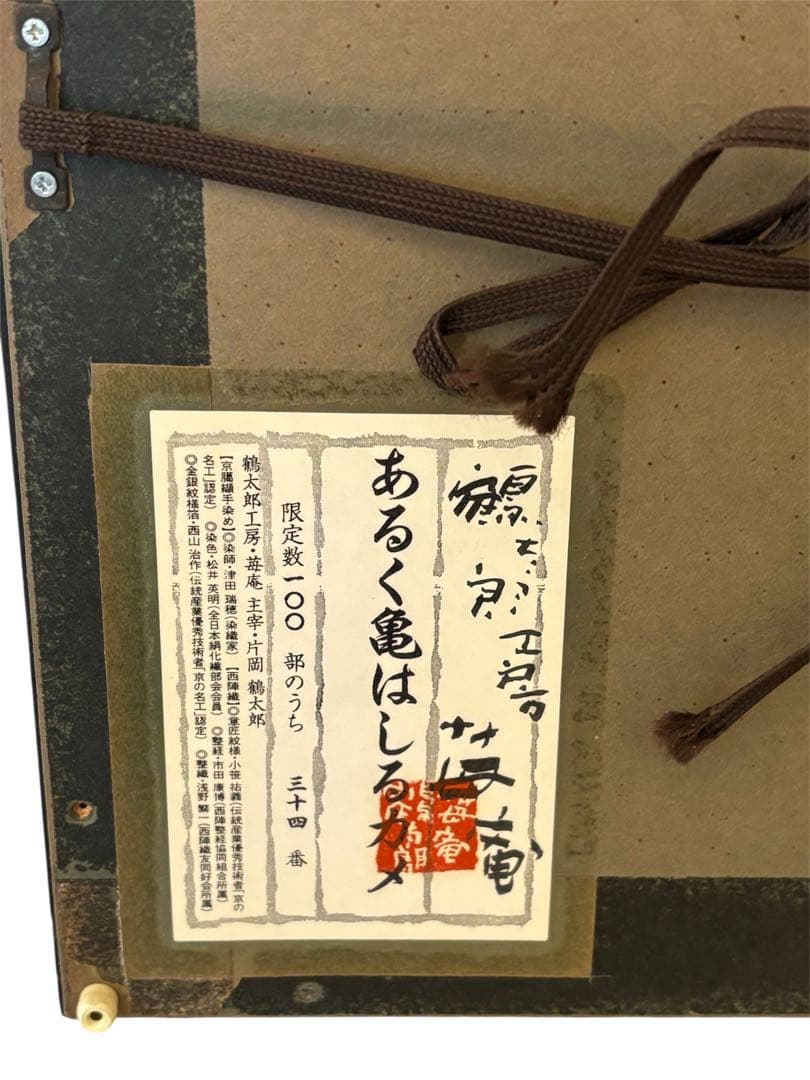 鶴太郎工房
苺庵
あるく亀はしるカメ
限定数一〇〇 部のうち 三十四 番
鶴太郎工房・苺庵 主宰・片岡 鶴太郎
【京臈纈手染め】◎染師・津田 瑞穂(染織家) 【西陣織】◎意匠紋様・小笹 祐義(伝統産業優秀技術者「京の
名工」認定) ◎染色・松井 英明(全日本絹化繊部会会員) ◎整経・市田 康博(西陣整経協同組合所属)
◎金銀紋様箔・西山 治作(伝統産業優秀技術者「京の名工」認定) ◎整織・浅野 繁一(西陣織友同好会所属)
苺庵